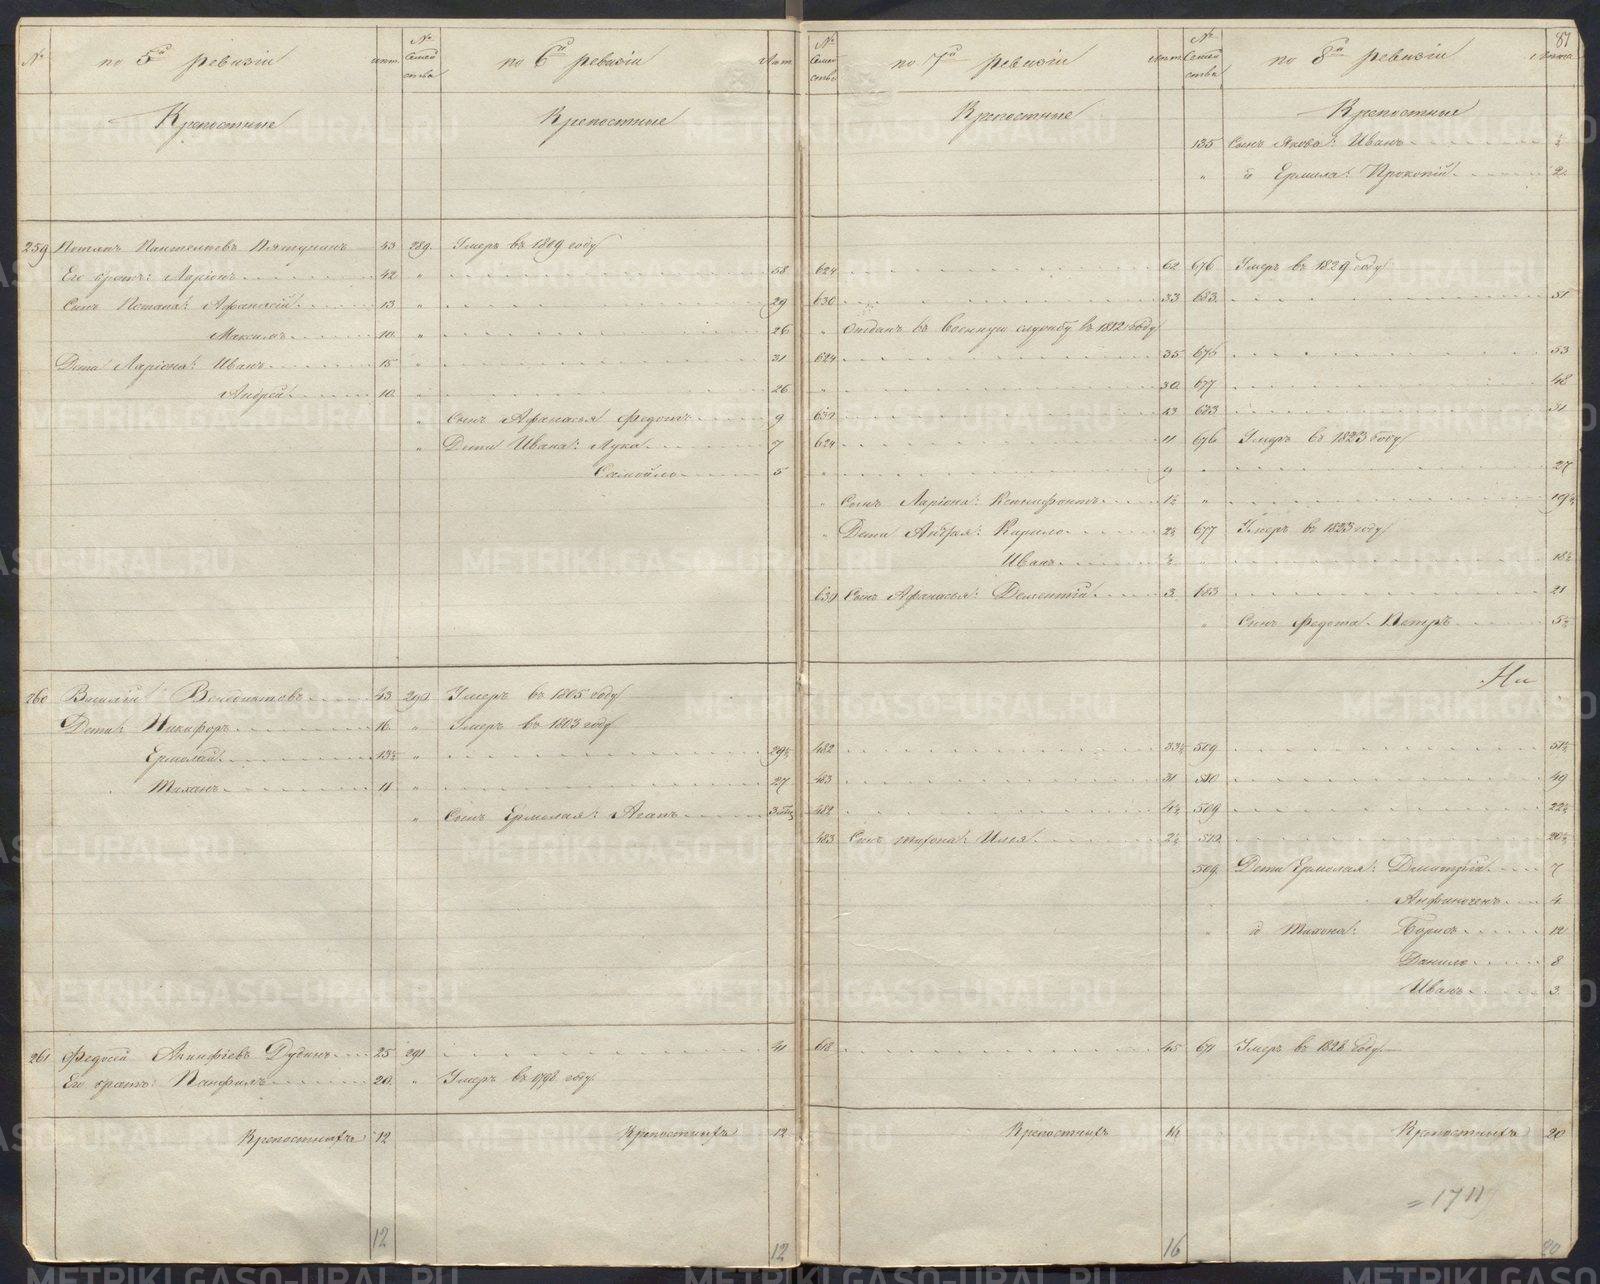 81
№ по 5й ревизіи лѣт. № Семейства по 6й ревизіи Лѣт.
№ Семейства по 7й ревизіи Лѣт. № Семейства по 8й ревизіи Лѣта
Крепостные Крепостные Крепостные Крепостные
135 Сынъ Якова: Иванъ
„ до Ермила: Прокопій 2
259 Потапъ Пантелѣевъ 43 289 Умеръ въ 1809 году
Его братъ: Ларіонъ 42 „ 58 624 62 676 Умеръ въ 1829 году
Сынъ Потапа: Афанасій 13 „ 29 630 33 683 51
Максимъ 10 „ 26 „ Отданъ въ военную службу въ 1812 году
Дети Ларіона: Иванъ 15 „ 31 624 35 676 53
Андрей 10 „ 26 „ 30 677 48
„ Сынъ Афанасья Федотъ 9 630 13 683 31
„ Дети Ивана: Лука 7 624 11 676 Умеръ въ 1823 году
Самойло 5 „ 9 „ 27
„ Сынъ Ларіона: Ксенифонтъ 1½ „ 19½
„ Дети Андрея: Кирило 2½ 677 Умеръ въ 1833 году
Иванъ ½ „ 18½
630 Сынъ Афанасья: Дементій 3 683 21
„ Сынъ Федота: Петръ 5½
260 Василій Венедиктовъ 43 290 Умеръ въ 1805 году
Дети: Никифоръ 16 „ Умеръ въ 1803 году
Ермолай 13½ „ 29½ 482 33½ 509 51½
Тихонъ 11 „ 27 483 31 510 49
„ Сынъ Ермолая: Агапъ 482 4½ 509 22½
483 Сынъ Тихона: Илья 2½ 510 20½
509 Дети Ермолая: Дмитрій 7
4
„ до Тихона: Борисъ 12
Данило 8
Иванъ 3
261 Федосѣй Акинфіевъ Дубинъ 25 291 41 618 45 671 Умеръ въ 1828 году
Его братъ: Панфилъ 20 „ Умеръ въ 1798 году
Крепостныхъ 12 Крепостныхъ 12 Крепостныхъ 16 Крепостныхъ 20
12 12 16 20
METRIKI.GASO-URAL.RU